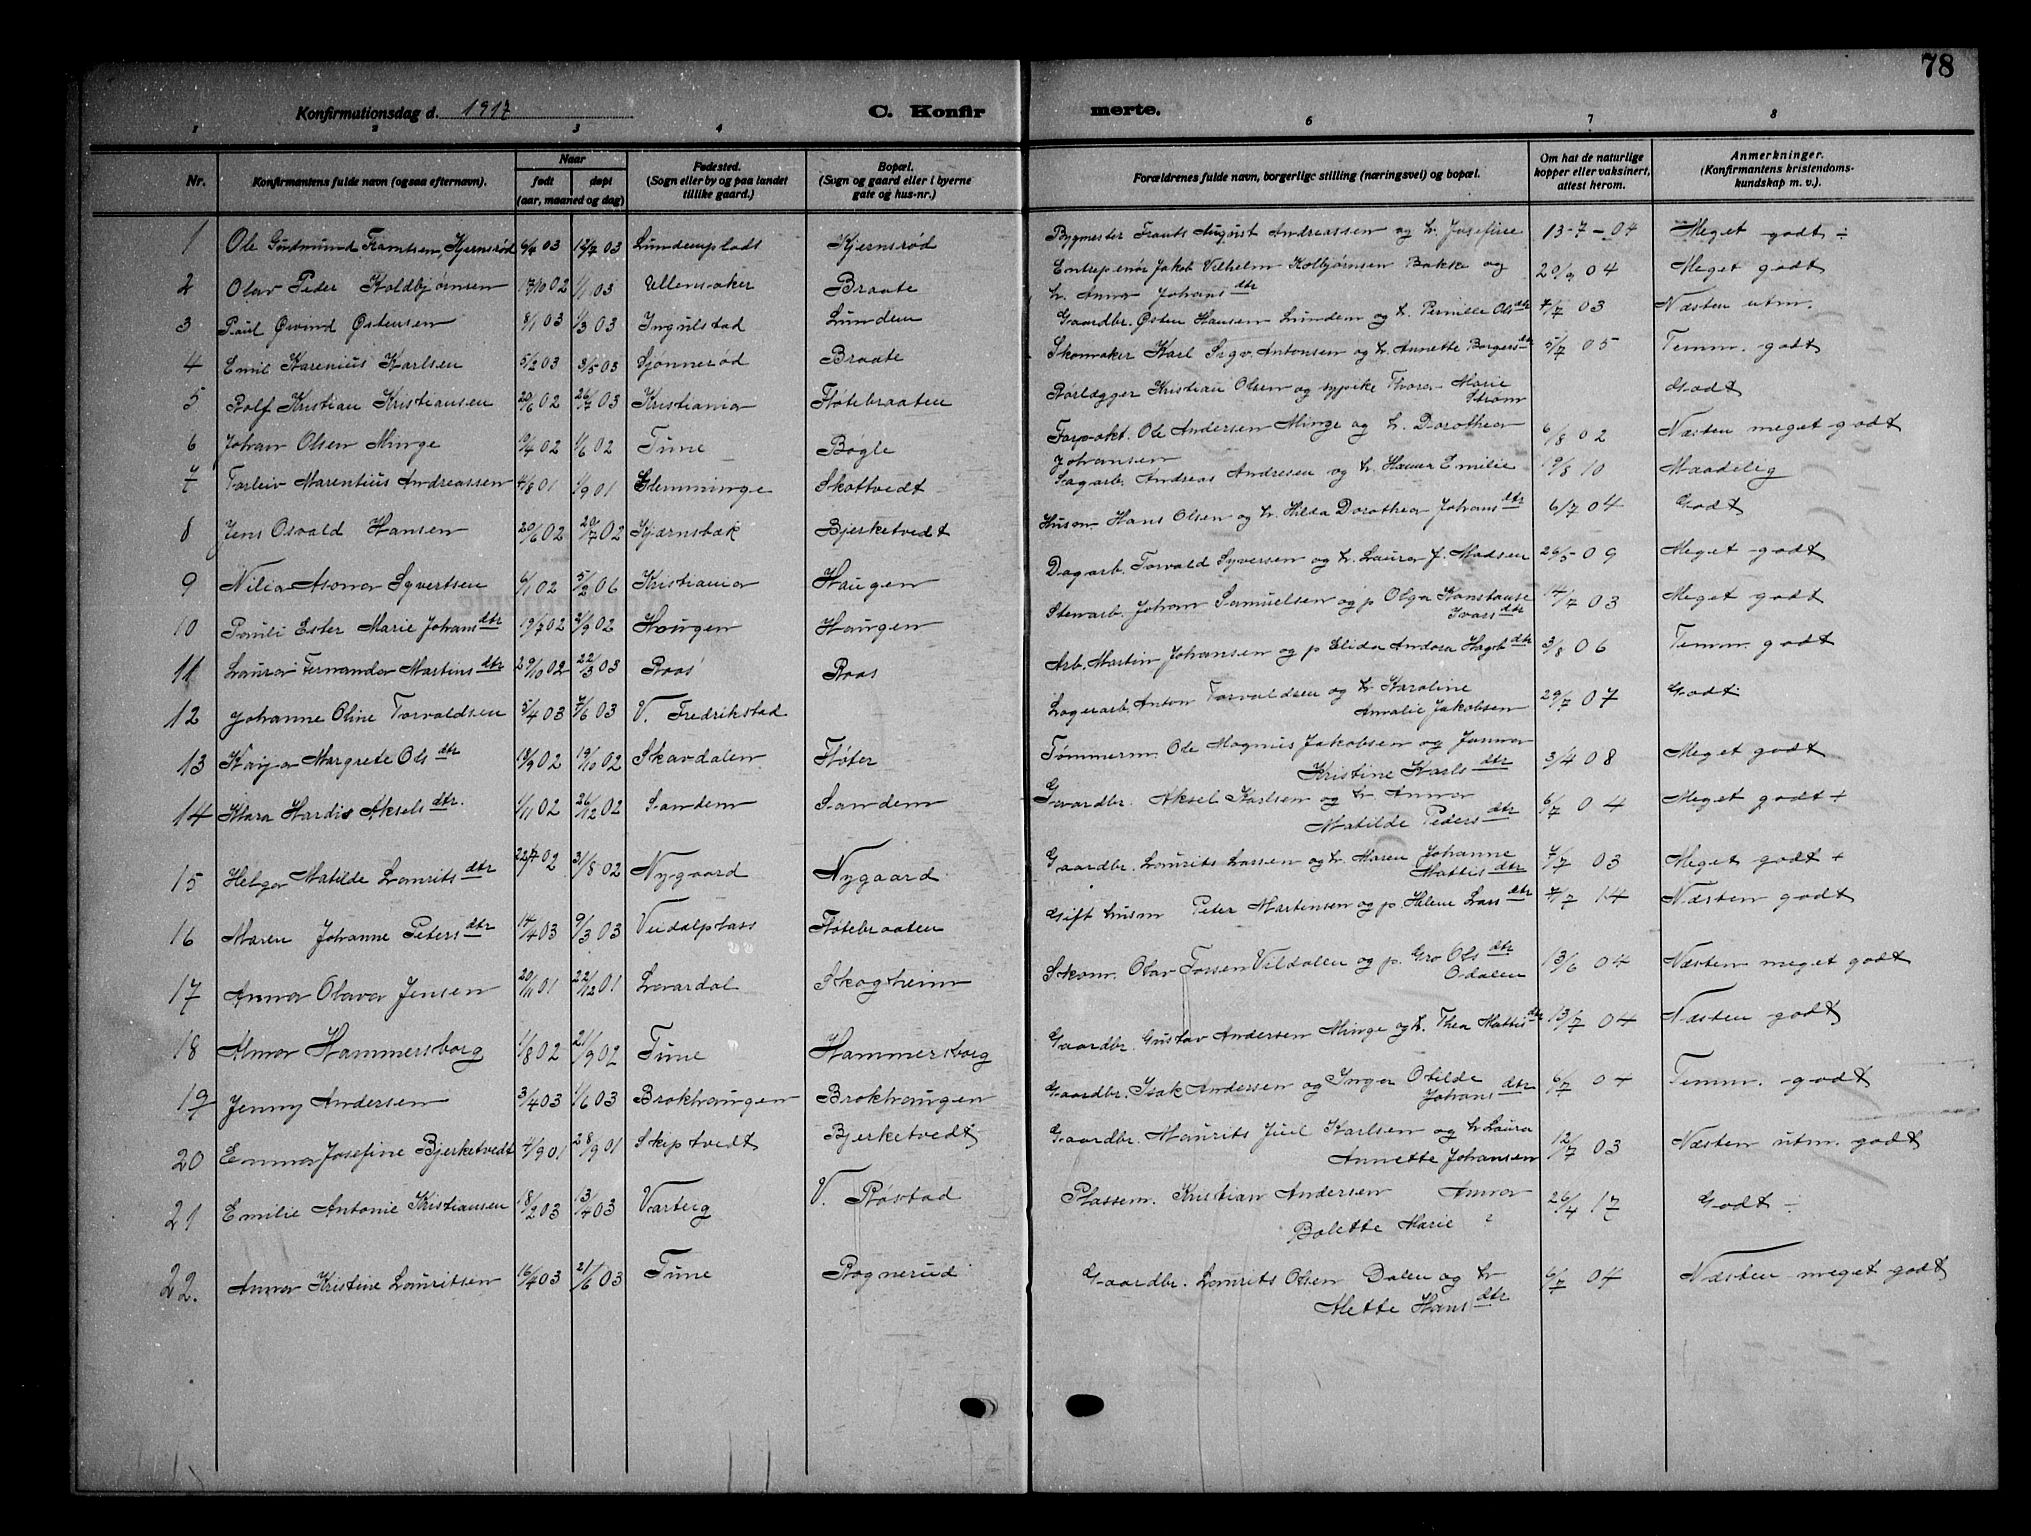 78
Konfirmationsdag d. 1917
C. Konfirmerte.
1 2 3 4 6 7 8
Nr.
Konfirmantens fulde navn (ogsaa efternavn).
Naar
født døpt
(aar, maaned og dag)
Fødested.
(Sogn eller by og paa landet
tillike gaard.)
Bopæl.
(Sogn og gaard eller i byerne
gate og hus-nr.)
Forældrenes fulde navn, borgerlige stilling (næringsvei) og bopæl.
Om hat de naturlige
kopper eller vaksinert,
attest herom.
Anmerkninger.
(Konfirmantens kristendoms-
kundskap m. v.).
1 Ole Gudmund Framtsen, Kjernsrød 6/4 03 12/7 03 Lundemplads Kjernsrød Bygmester Frants August Andreassen og h. Josefine 13-7-04 Meget godt ÷
2 Olav Peder Koldbjörnsen 17/10 02 1/1 03 Ullensaker Braate Entrepenör Jakob Vilhelm Kolbjörnsen Bakke og 29/9 04 Meget godt
h. Anna Johansdtr
3 Paul Øivind Østensen 8/1 03 1/3 03 Ingulstad Lundem Gaardbr. Østen Hansen Lundem og h. Pernille Olsdtr 7/7 03 Næsten utm.
4 Emil Karenius Karlsen 5/2 03 3/5 03 Sjönnerød Braate Skomaker Karl Sigv. Antonsen og h. Annette Borgersdtr 5/7 05 Temm. godt
5 Rolf Kristian Kristiansen 20/6 02 26/7 03 Kristiania Fløtebraaten Rörlægger Kristian Olsen og sypike Thora Marie Godt
Strøm
6 Johan Olsen Minge 19/4 02 1/6 02 Tune Bøgle Forpakt. Ole Andersen Minge og h. Dorothea 6/8 02 Næsten meget godt
Johansen
7 Torleiv Marentius Andreassen 4/8 01 1/9 01 Glemminge Skattvedt Sagarb. Andreas Andresen og h. Hanna Emilie 19/8 10 Maadelig
8 Jens Osvald Hansen 20/6 02 20/7 02 Kjærnsbæk Bjerketvedt Husm. Hans Olsen og h. Hilda Dorothea Johansdtr 6/7 04 Godt
9 Nilia Asona Syvertsen 6/1 02 5/2 06 Kristiania Haugen Dagarb. Torvald Syversen og h. Laura J. Madsen 26/5 09 Meget godt
10 Pauli Ester Marie Johansdtr 19/7 02 21/9 02 Haugen Haugen Stenarb. Johan Samuelsen og p. Olga Konstanse 14/7 03 Meget godt
Ivarsdtr
11 Laura Fernanda Martinsdtr 29/10 02 22/3 03 Roos Roos Arb. Martin Johansen og p Elida Andora Hagbdtr 3/8 06 Temm. godt
12 Johanne Oline Torvaldsen 5/4 03 7/6 03 V. Fredrikstad Lagerarb. Anton Torvaldsen og h Karoline 29/7 07 Godt
Amalie Jakobsen
13 Kaija Margrete Olsdtr 18/9 02 19/10 02 Skavdalen Fløter Tømmerm. Ole Magnus Jakobsen og Janna 3/4 08 Meget godt
Kristine Karlsdtr
14 Klara Hardis Akselsdtr. 1/11 02 26/12 02 Sandem Sandem Gaardbr. Aksel Karlsen og h Anna 6/7 04 Meget godt +
Matilde Pedersdtr
15 Helga Matilde Lauritsdtr 22/7 02 31/8 02 Nygaard Nygaard Gaardbr. Laurits Lassen og h. Maren Johanne 7/7 03 Meget godt +
Mattisdtr
16 Maren Johanne Petersdtr 14/4 03 9/3 03 Veidalplass Fløtebraaten Gift husm Peter Martensen og p. Helene Larsdtr 7/7 14 Næsten godt
17 Anna Olava Jensen 20/11 01 22/12 01 Lavardal Skogheim Skom. Olav Tossen Vildalen og p. Gro Olsdtr 13/6 04 Næsten meget godt
Odalen
18 Alma Hammersborg 1/8 02 21/9 02 Tune Hammersborg Gaardbr. Gustav Andersen Minge og h. Thea Mattisdtr 13/7 04 Næsten godt
19 Jenny Andersen 3/4 03 1/6 03 Brokhaugen Brokhaugen Gaardbr. Isak Andersen og Inga Otilde 6/7 04 Temm. godt
Johansdtr
20 Emma Josefine Bjerketvedt 4/9 01 28/9 01 Skiptvedt Bjerketvedt Gaardbr. Maurits Juel Karlsen og h Laura 12/7 03 Næsten utm. godt
Annette Johansen
21 Emilie Antonie Kristiansen 18/2 03 13/4 03 Varteig V. Røstad Plassem. Kristian Andersen Anna 26/4 17 Godt ÷
Bolette Marie ?
22. Anna Kristine Lauritsen 16/4 03 21/6 03 Tune Rognerud Gaardbr. Laurits Olsen Dalen og h 6/7 04 Næsten meget godt
Mette Hansdtr